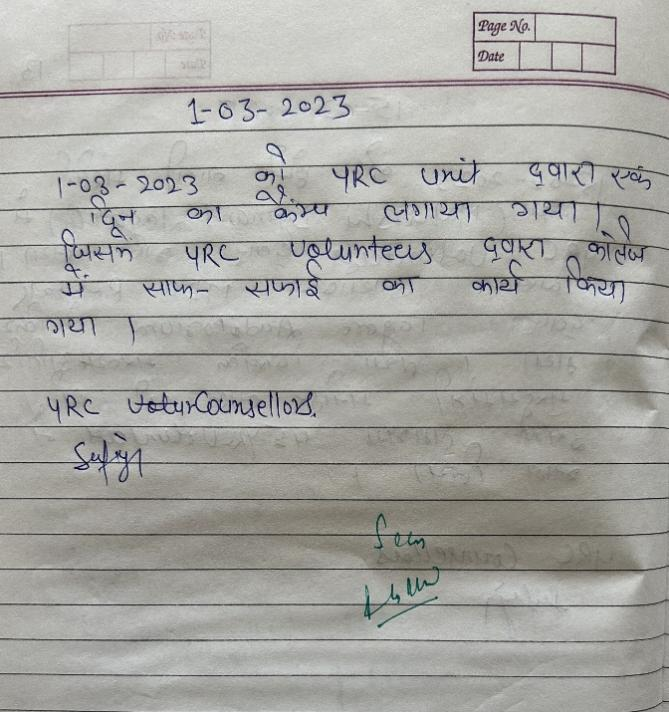 Page No.
Date
1-03-2023
1-03-2023 को YRC unit द्वारा एक
दिन का कैम्प लगाया गया |
जिसमें YRC volunteers द्वारा कॉलेज
में साफ-सफाई का कार्य किया
गया |
YRC Counsellors.
Seen